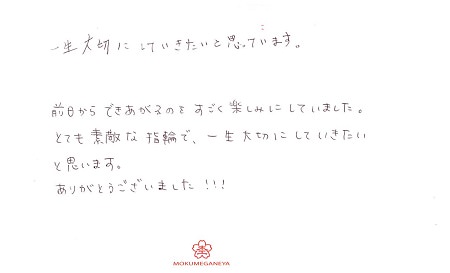 一生大切にしていきたいと思っています。
前日からできあがるのをすごく楽しみにしていました。
とても素敵な指輪で、一生大切にしていきたい
と思います。
ありがとうございました!!!
MOKUMEGANEYA